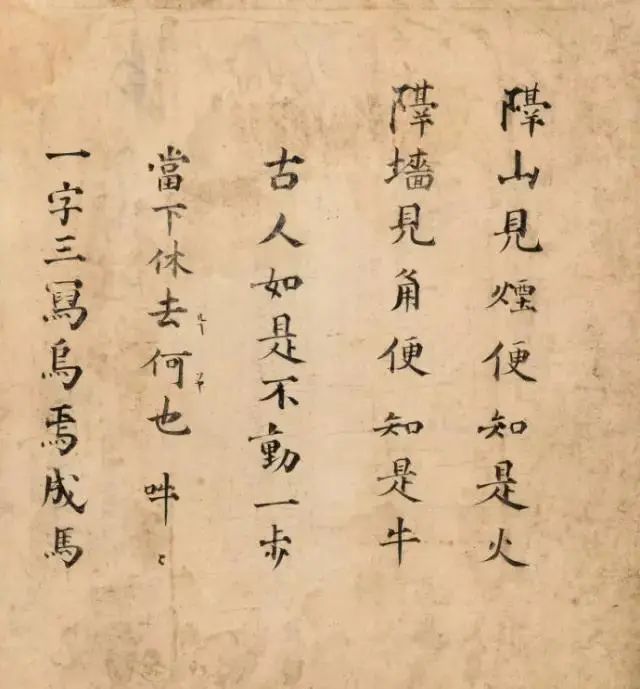 隔山見煙便知是火
隔墻見角便知是牛
古人如是不動一歩
當下休去何也 吽〻
一字三冩烏焉成馬